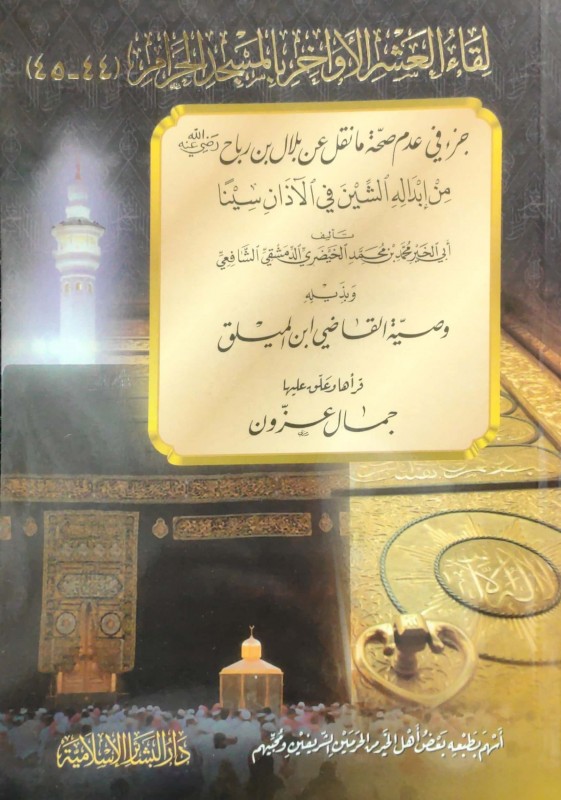 لِقَاءُ العَشْرِ الأَوَاخِرِ بِالمَسْجِدِ الحَرَامِ (٤٤-٤٥)
جزء في عدم صحّة ما نقل عن بلال بن رباح رضي الله عنه
مِنْ إبْدَالِهِ الشِّينَ فِي الآذَانِ سِينًا
تأليف
أبي الخير محمّد بن محمّد الخيضري الدمشقي الشافعي
وبذيله
وصيّة القاضي ابن الميلق
قرأها وعلّق عليها
جمال عزّون
لا إله إلا الله
أسهم بطبعه بعض أهل الخير من الحرمين الشريفين ومحبيهم
دار البشائر الإسلامية